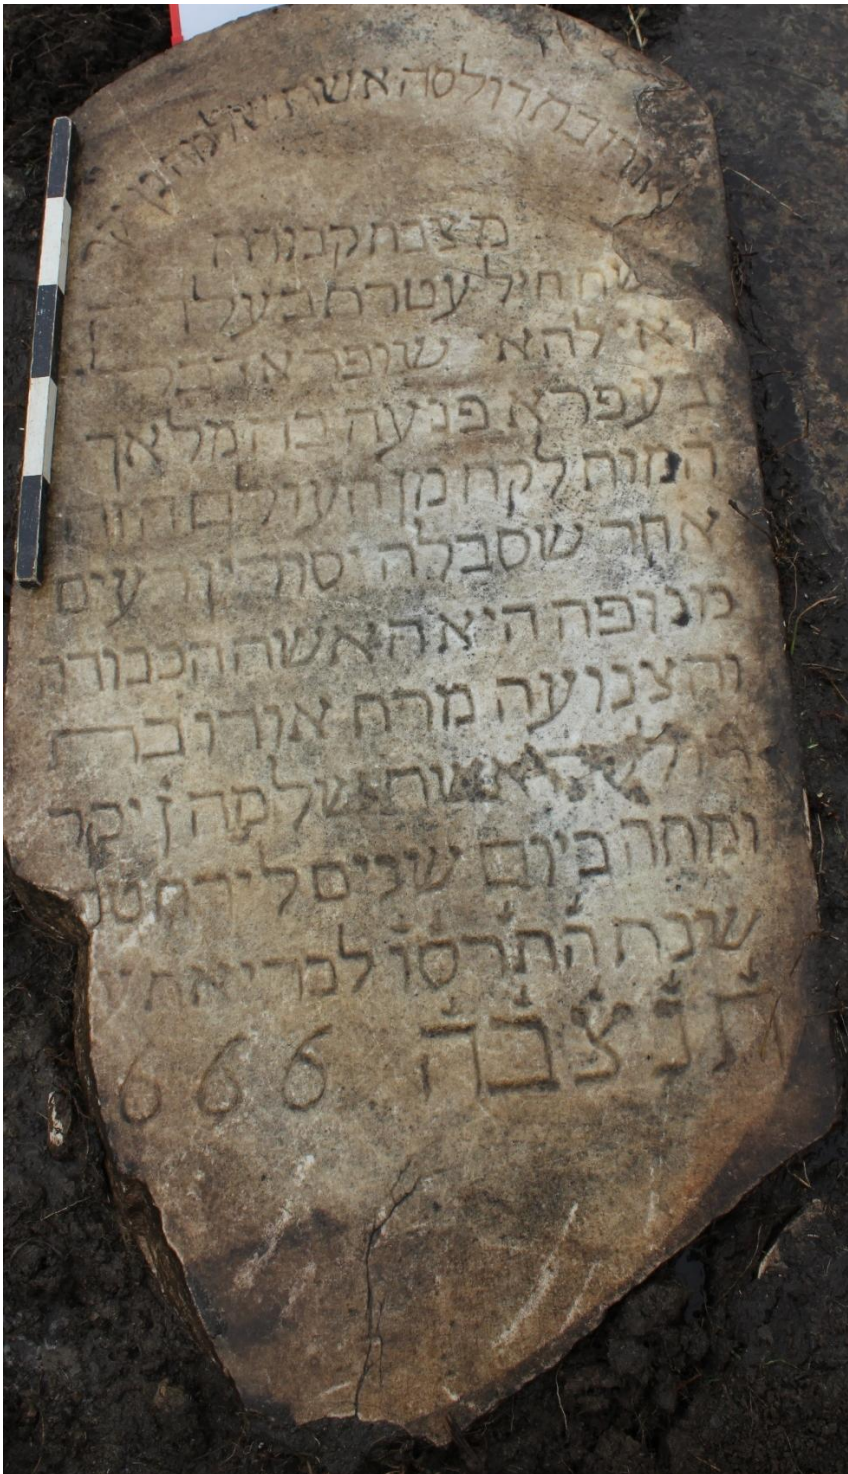 אורו בת דולסה אשת שלמה בן יקר
מצבת קבורת
אשת חיל עטרת בעלה
ואי להאי שופרא דבלי
בעפרא פגעה בה מלאך
המות לקח מן העולם הזה
אחר שסבלה יסורין רעים
מגופה היא האשה הכבודה
והצנועה מרת אורו בת
דולסה אשת שלמה ן יקר
ומתה ביום שנים לירח טבת
שנת התרסו לבריאת
תנצבה 666